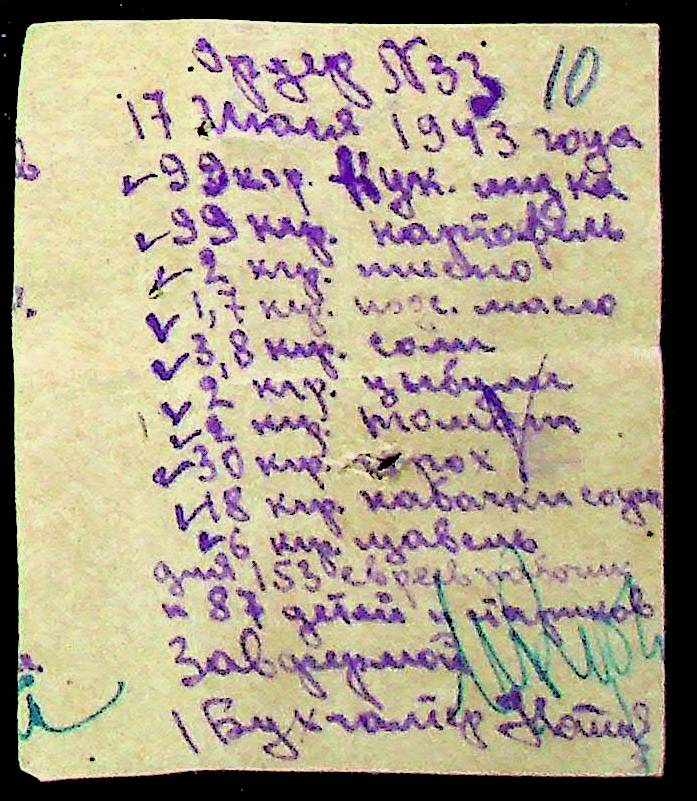 Ордер N33 10
17 Июля 1943 года
99 кгр. Кук. мука
99 кгр. картофель
2 кгр. пшено
1,7 кгр. подс. масло
3,8 кгр. соли
2 кгр. цыбули
2 кгр.
30 кгр. горох
18 кгр. кабачки
6 кгр. щавель
для 153 евреев рабочих
и 87 детей и стариков
Завфермой
Бухгалтер